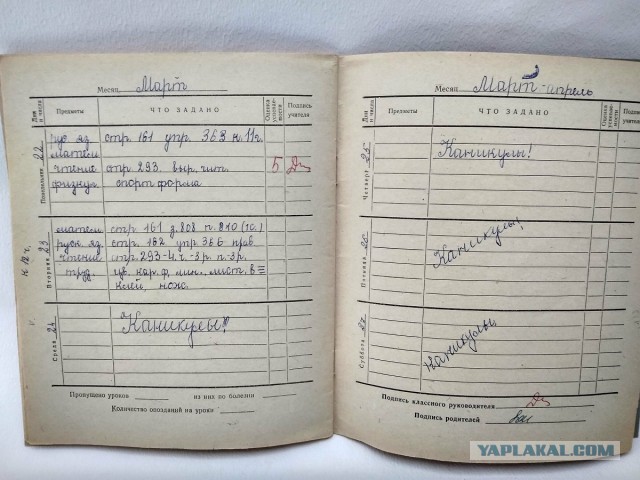 Месяц Март
Дни и числа Предметы ЧТО ЗАДАНО Оценка успеваемости Подпись учителя
Понедельник 22
рус яз. стр. 161 упр. 363 к. 11г.
матем
чтение стр. 293. выр. чит. 5
физкул. спорт форма
Вторник 23
к 12 ч.
матем стр 161 з. 808 п. 810 (го.)
руск яз. стр. 162 упр. 366 прав.
чтение стр. 293-4. ч. -3 р. п.-3 р.
труд цв. кар. ф. лин. лист. в
клей, нож.
Среда 24
Каникулы!
Пропущено уроков из них по болезни
Количество опозданий на уроки
Месяц Март - апрель
Дни и числа Предметы ЧТО ЗАДАНО Оценка успеваемости Подпись учителя
Четверг 25
Каникулы!
Пятница 26
Каникулы!
Суббота 27
Каникулы
Подпись классного руководителя
Подпись родителей
YAPLAKAL.COM